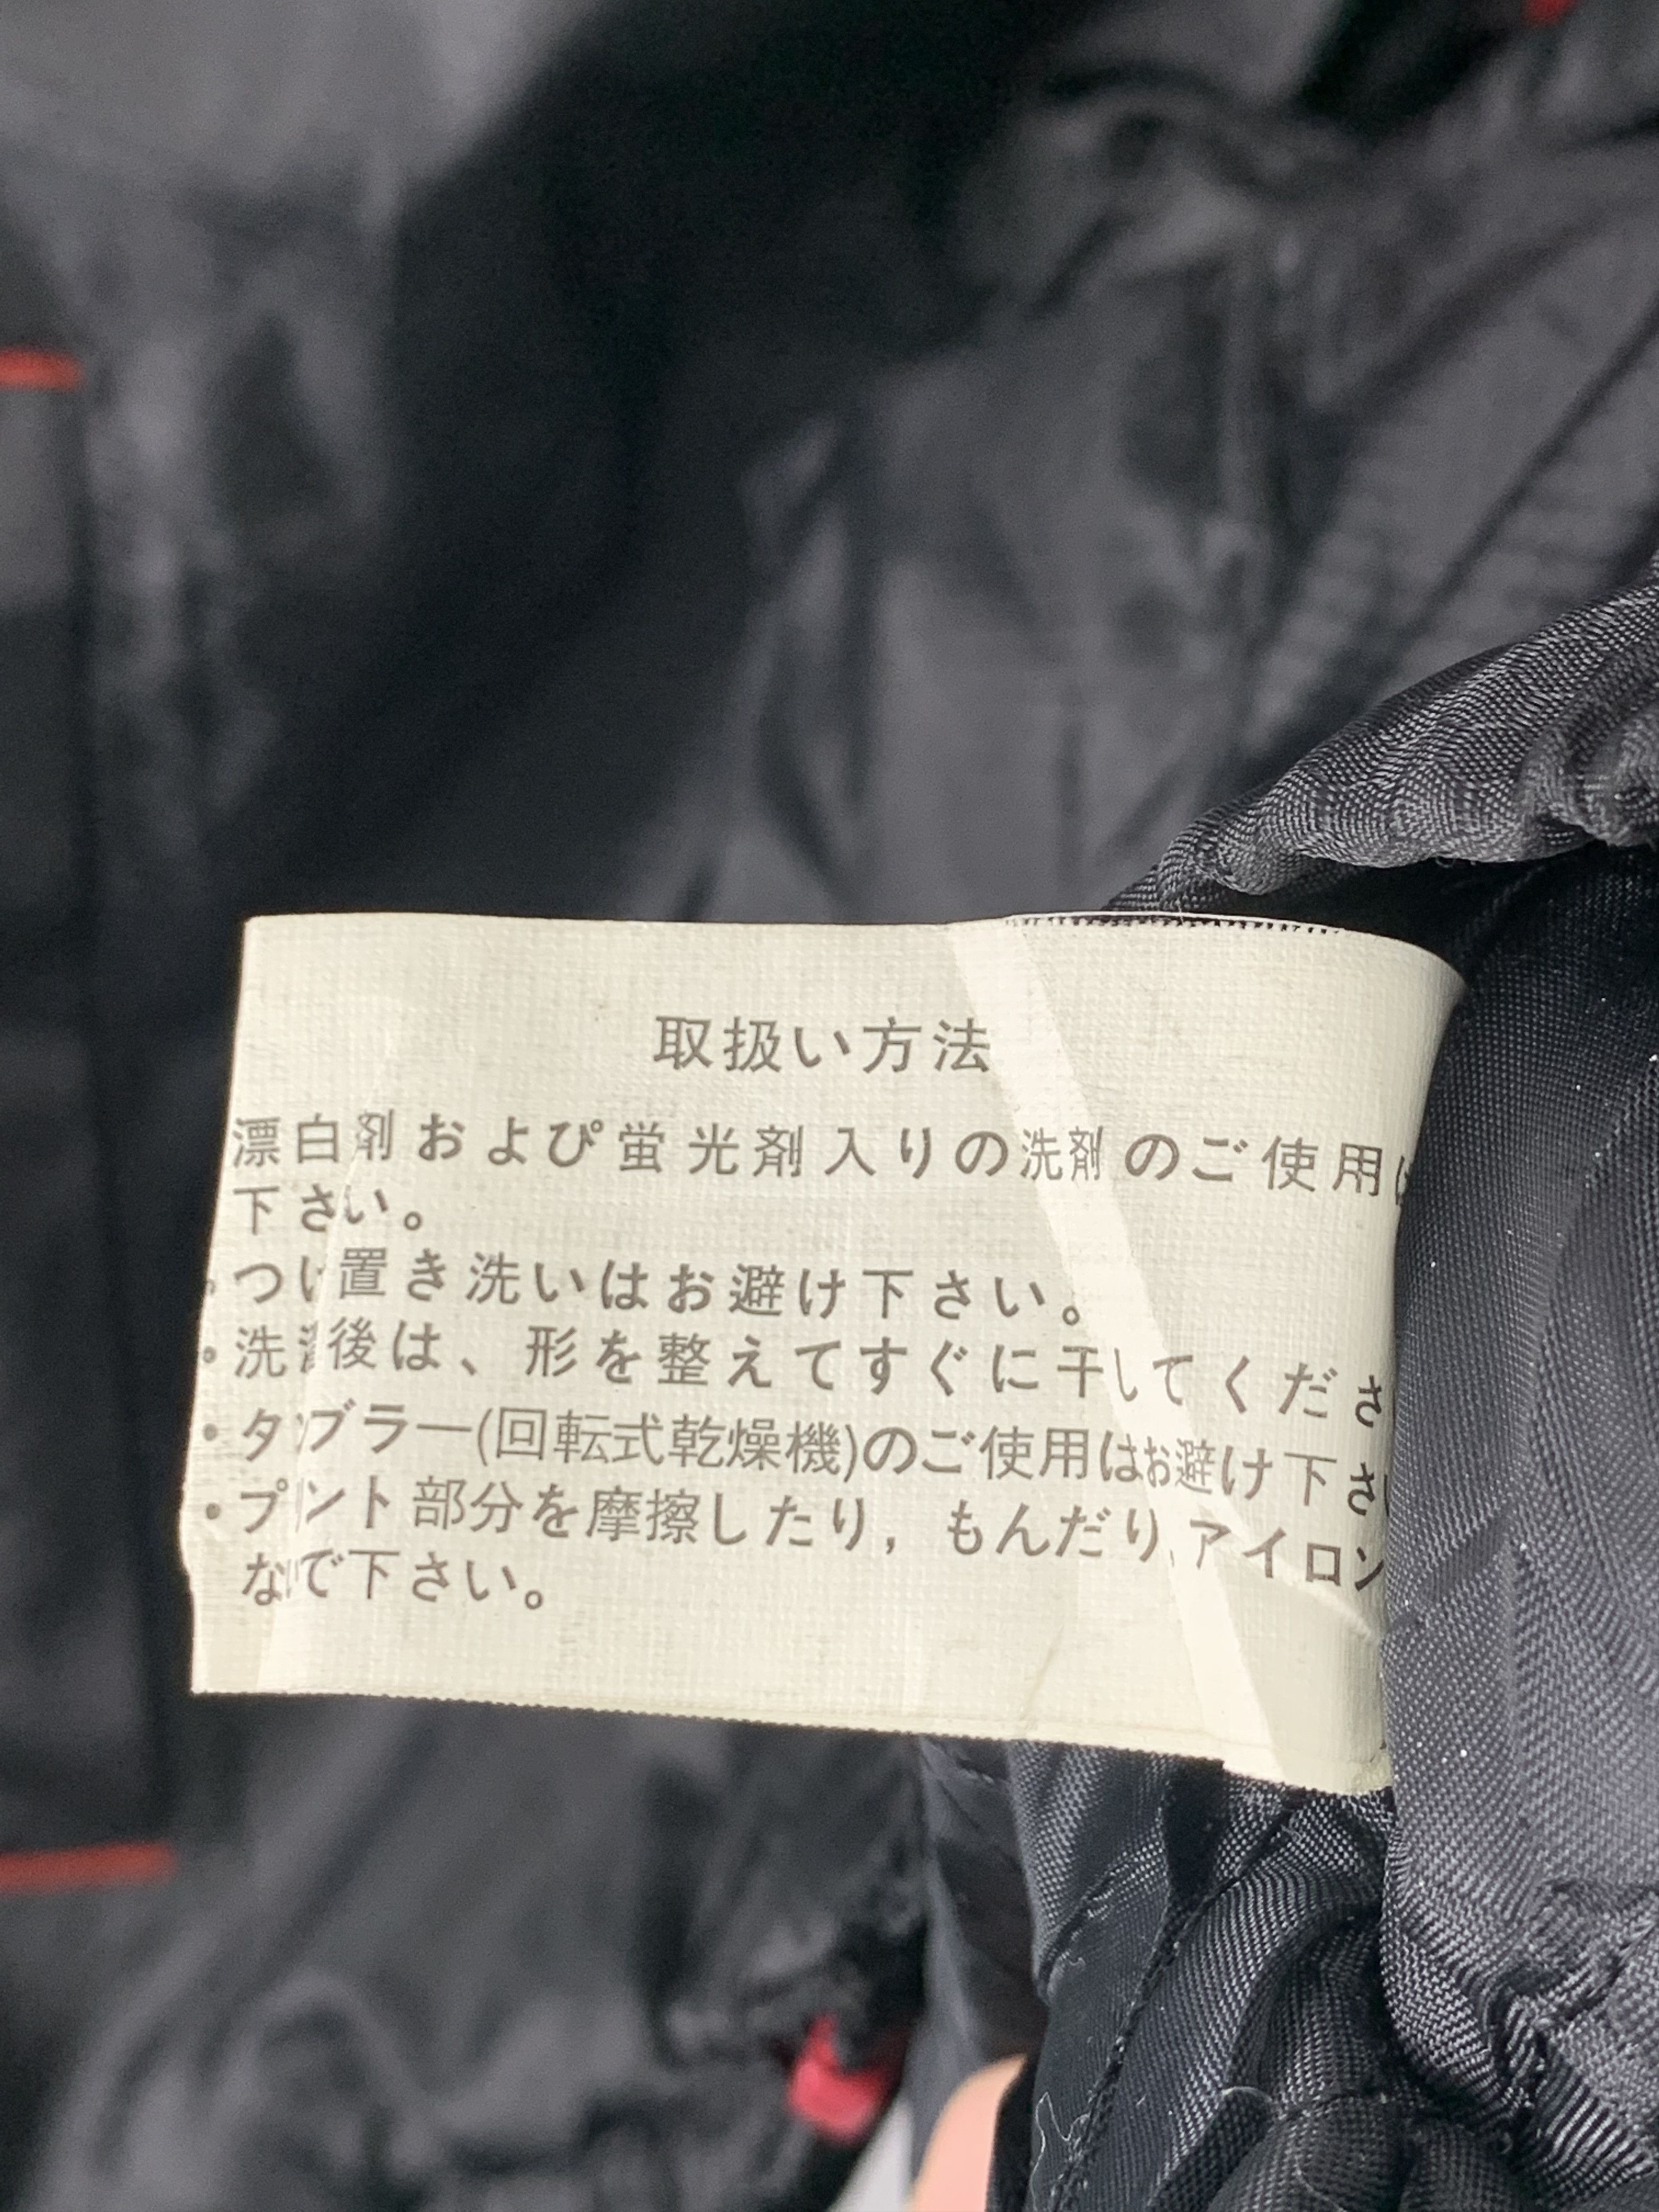 取扱い方法
漂白剤および蛍光剤入りの洗剤のご使用は
下さい。
・つけ置き洗いはお避け下さい。
・洗濯後は、形を整えてすぐに干してくださ
・タブラー(回転式乾燥機)のご使用はお避け下さい
・プント部分を摩擦したり，もんだり,アイロン
なで下さい。